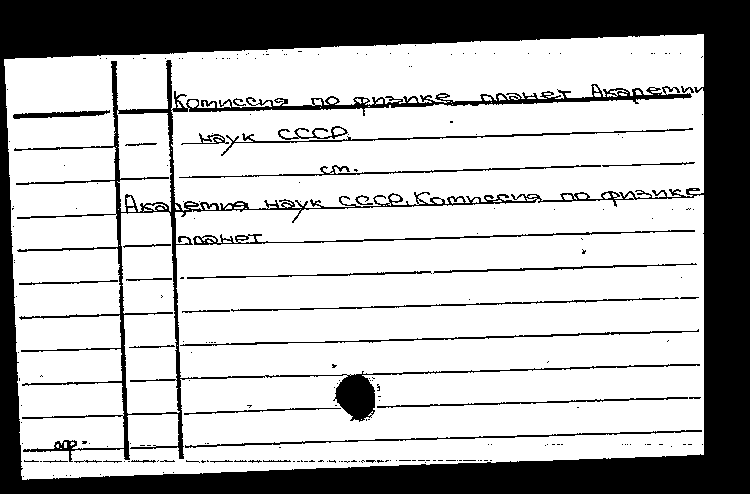 Комиссия по физике планет Академии
наук СССР.
см.
Академия наук СССР. Комиссия по физике
планет.